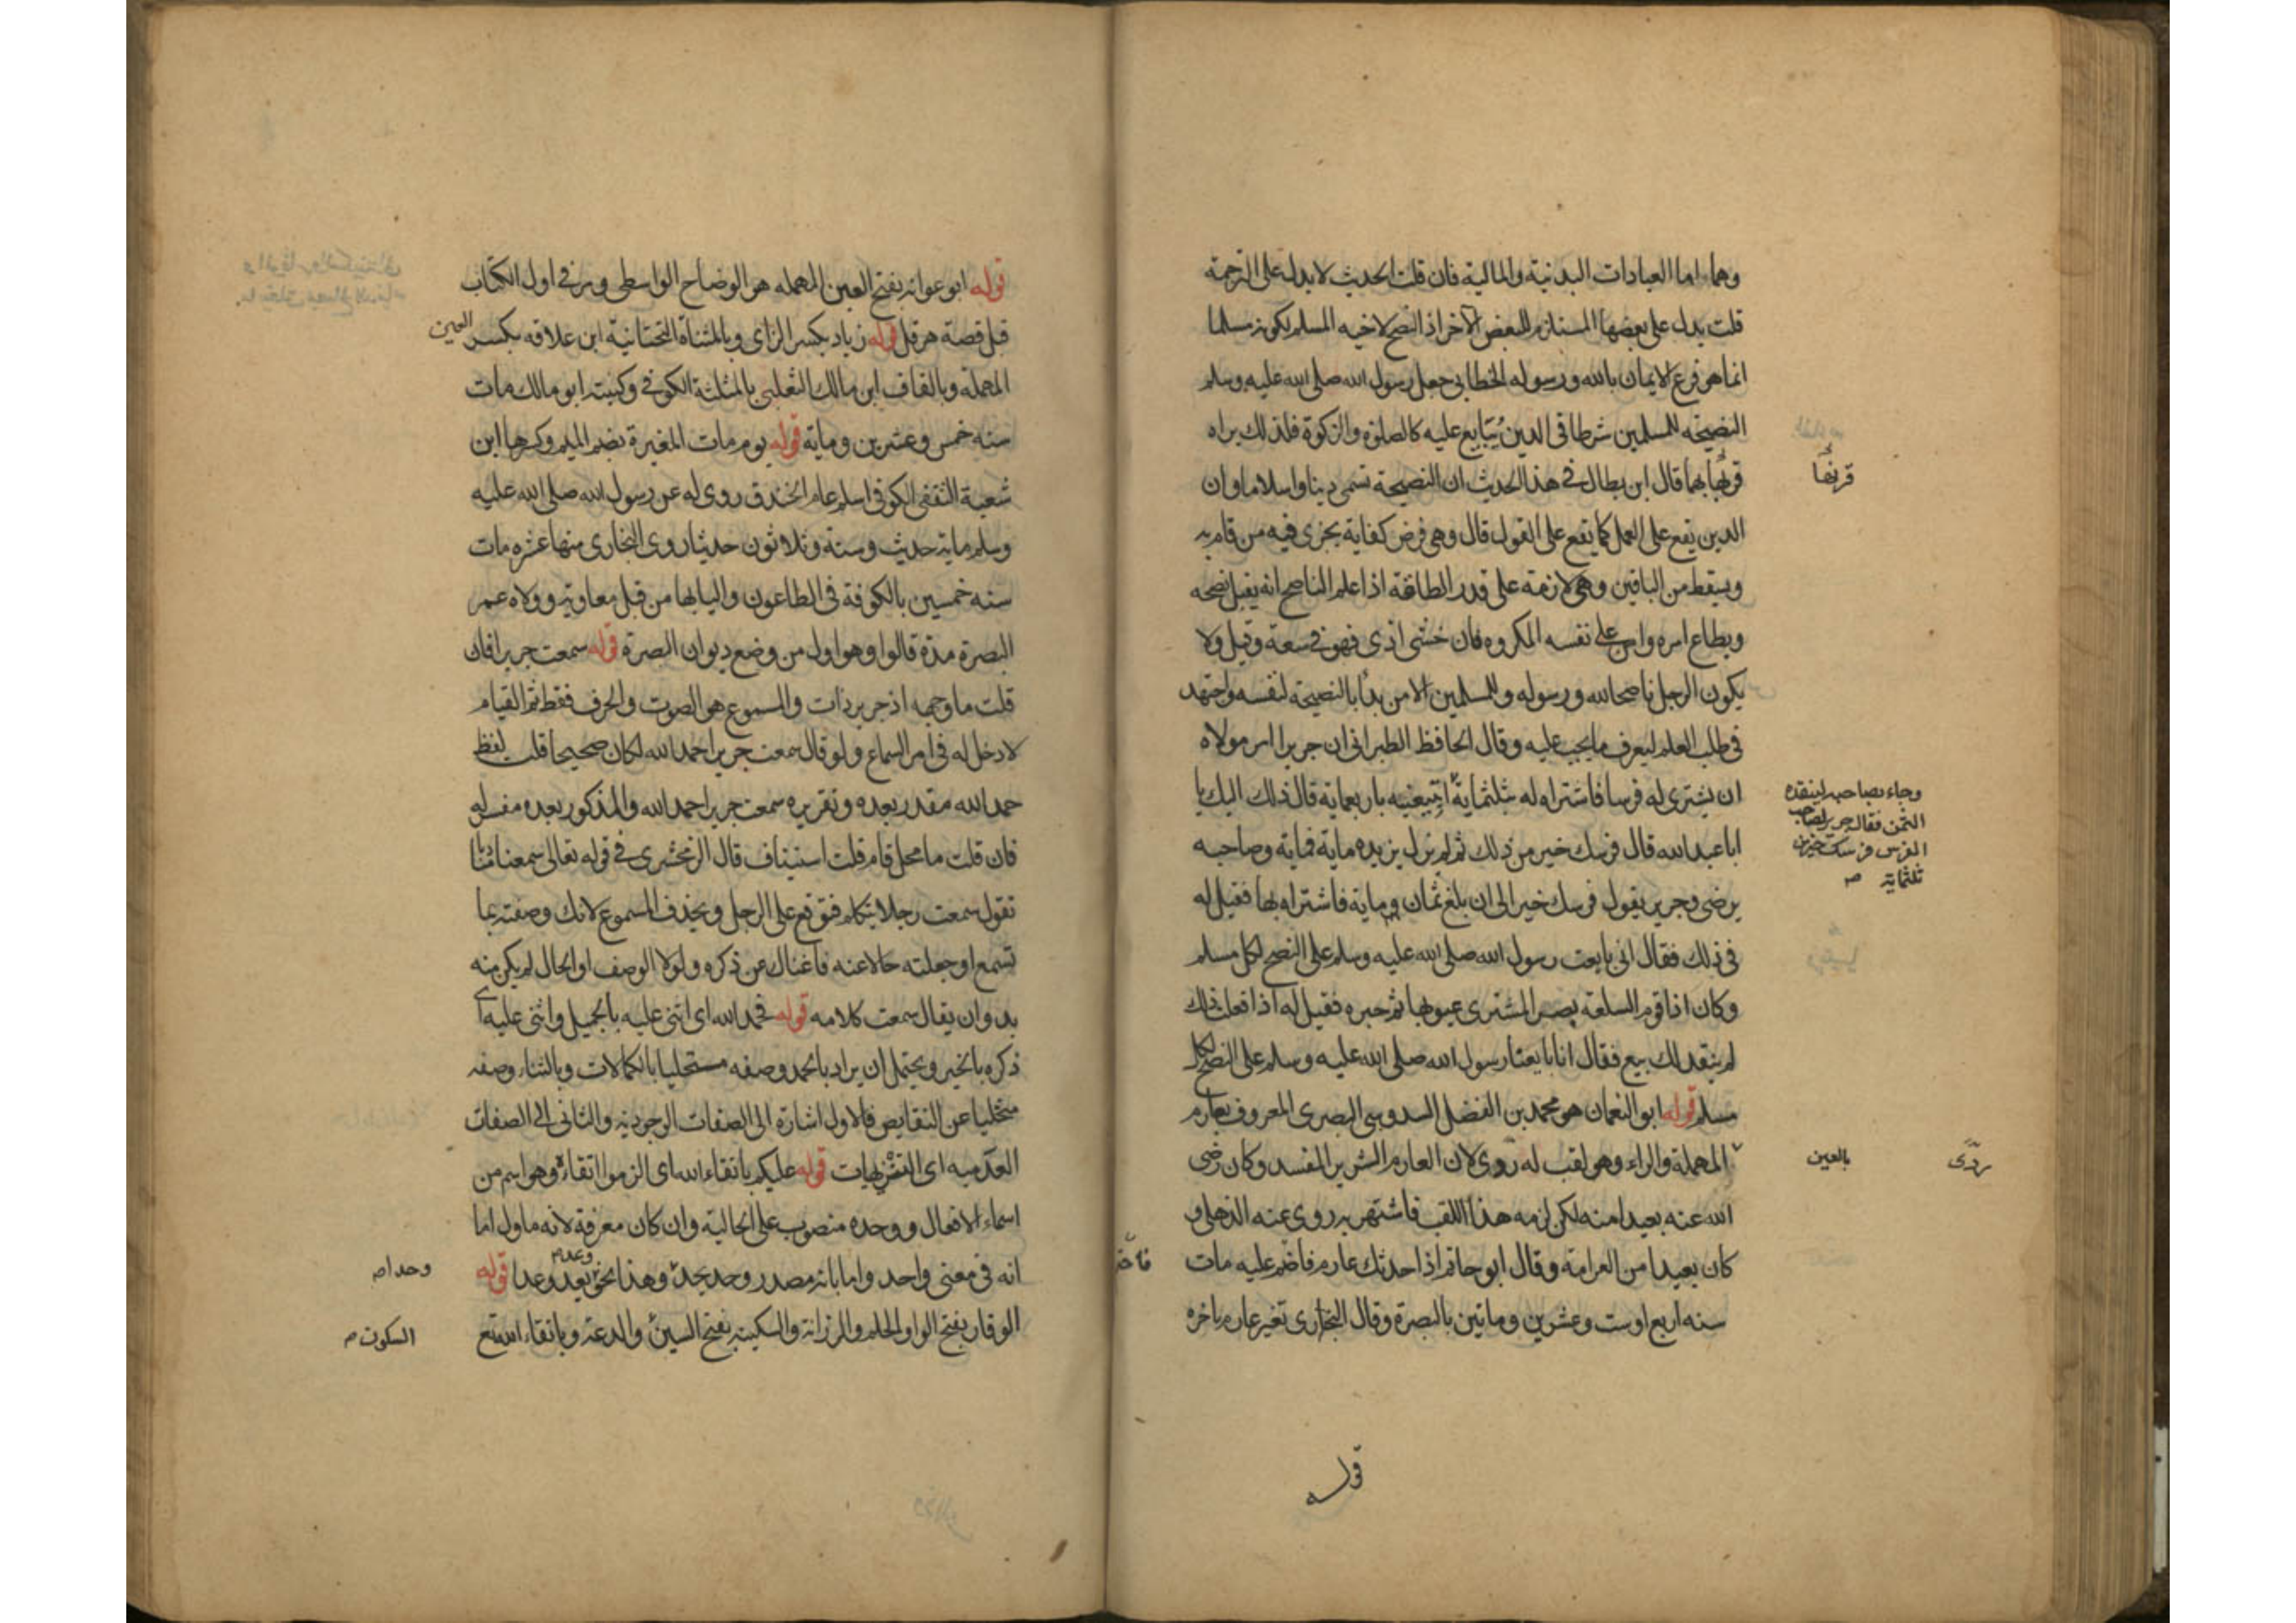 وهما اما العبادات البدنية والمالية فان قلت الحديث لا يدل على الترجمة
قلت يدل على بعضها المستلزم للبعض الآخر اذ النصح لاخيه المسلم لكونه مسلما
انما هو فرع الايمان بالله ورسوله الخطابي جعل رسول الله صلى الله عليه وسلم
النصيحة للمسلمين شرطا في الدين يُبَايع عليه كالصلوة والزكوة فلذلك تراه
قرنها بهما قال ابن بطال في هذا الحديث ان النصيحة تسمى دينا واسلاما وان
قرنها
الدين يقع على العمل كما يقع على القول قال وهي فرض كفاية يجزى فيه من قام به
ويسقط من الباقين وهي لازمة على قدر الطاقة اذا علم الناصح انه يقبل نصحه
ويطاع امره وامن على نفسه المكروه فان خشى اذى فهو في سعة وقيل ولا
يكون الرجل ناصحا لله ورسوله وللمسلمين الا من بدأ بالنصيحة لنفسه واجتهد
في طلب العلم ليعرف ما يجب عليه وقال الحافظ الطبراني ان جريرا امر مولاه
ان يشترى له فرسا فاشتراه له بثلثماية اتبيعنيه باربعماية قال ذلك اليك يا
وجاء بصاحبه لينقده
الثمن فقال جرير لصاحب
الفرس فرسك خير من
ثلثماية صح
ابا عبد الله قال فرسك خير من ذلك ثم لم يزل يزيده ماية فماية وصاحبه
يرضى وجرير يقول فرسك خير الى ان بلغ ثمان ماية فاشتراه بها فقيل له
في ذلك فقال اني بايعت رسول الله صلى الله عليه وسلم على النصح لكل مسلم
وكان اذا قوم السلعة بصر المشترى عيوبها ثم خيره فقيل له اذا فعلت ذلك
لم ينفد لك بيع فقال انا بايعنا رسول الله صلى الله عليه وسلم على النصح لكل
مسلم قوله ابو النعمان هو محمد بن الفضل السدوسي البصرى المعروف بعارم
المهملة والراء وهو لقب له روى لان العارم الشرير المفسد وكان رضى
بالعين
ردّى
الله عنه بعيدا منه لكن لزمه هذا اللقب فاشتهر به روى عنه الذهلى و
كان بعيدا من العرامة وقال ابو حاتم اذا حدثك عارم فاختم عليه مات
فاختم
سنه اربع او ست وعشرين وماتين بالبصرة وقال البخارى تغير عارم باخره
قوله
قوله ابو عوانه بفتح العين المهمله هو الوضاح الواسطى ومر في اول الكتاب
قبل قصة هرقل قوله زياد بكسر الزاى وبالمثناة التحتانية ابن علاقه بكسر العين
المهملة وبالقاف ابن مالك الثعلبى بالمثلثة الكوفي وكنيته ابو مالك مات
سنه خمس وعشرين وماية قوله يوم مات المغيرة بضم الميم وكسرها ابن
شعبة الثقفى الكوفي اسلم عام الخندق روى له عن رسول الله صلى الله عليه
وسلم ماية حديث وستة وثلاثون حديثا روى البخارى منها عشره مات
سنه خمسين بالكوفة في الطاعون واليا بها من قبل معاوية وولاه عمر
البصرة مدة قالوا وهو اول من وضع ديوان البصرة قوله سمعت جريرا فان
قلت ما وجهه اذ جرير ذات والمسموع هو الصوت والحرف فقط ثم القيام
لا دخل له في امر السماع ولو قال سمعت جريرا حمد الله لكان صحيحا قلت لفظ
حمد الله مقدر بعده وتقريره سمعت جريرا حمد الله والمذكور بعده مفسر له
فان قلت ما محل قام قلت استيناف قال الزمخشرى في قوله تعالى سمعنا مناديا
تقول سمعت رجلا يتكلم فتوقع على الرجل ويحذف المسموع لانك وصفته بما
تسمع او جعلته حالا عنه فاغناك عن ذكره ولولا الوصف او الحال لم يكن منه
بد وان يقال سمعت كلامه قوله فحمد الله اى اثنى عليه بالجميل واثنى عليه اى
ذكره بالخير ويحتمل ان يراد بالحمد وصفه مستحليا بالكمالات وبالثناء وصفه
متخليا عن النقايص فالاول اشارة الى الصفات الوجودية والثاني الى الصفات
العدميه اى التنزيهات قوله عليكم باتقاء الله اى الزموا اتقاءه وهو اسم من
اسماء الافعال ووحده منصوب على الحالية وان كان معرفة لانه ماول اما
انه في معنى واحد واما بانه مصدر وحد يحد وهذا نحو يعد وعدا قوله
وحدا صح
الوقار بفتح الواو الحلم والرزانة والسكينة بفتح السين والدعة وباتقاء الله مع
السكون صح